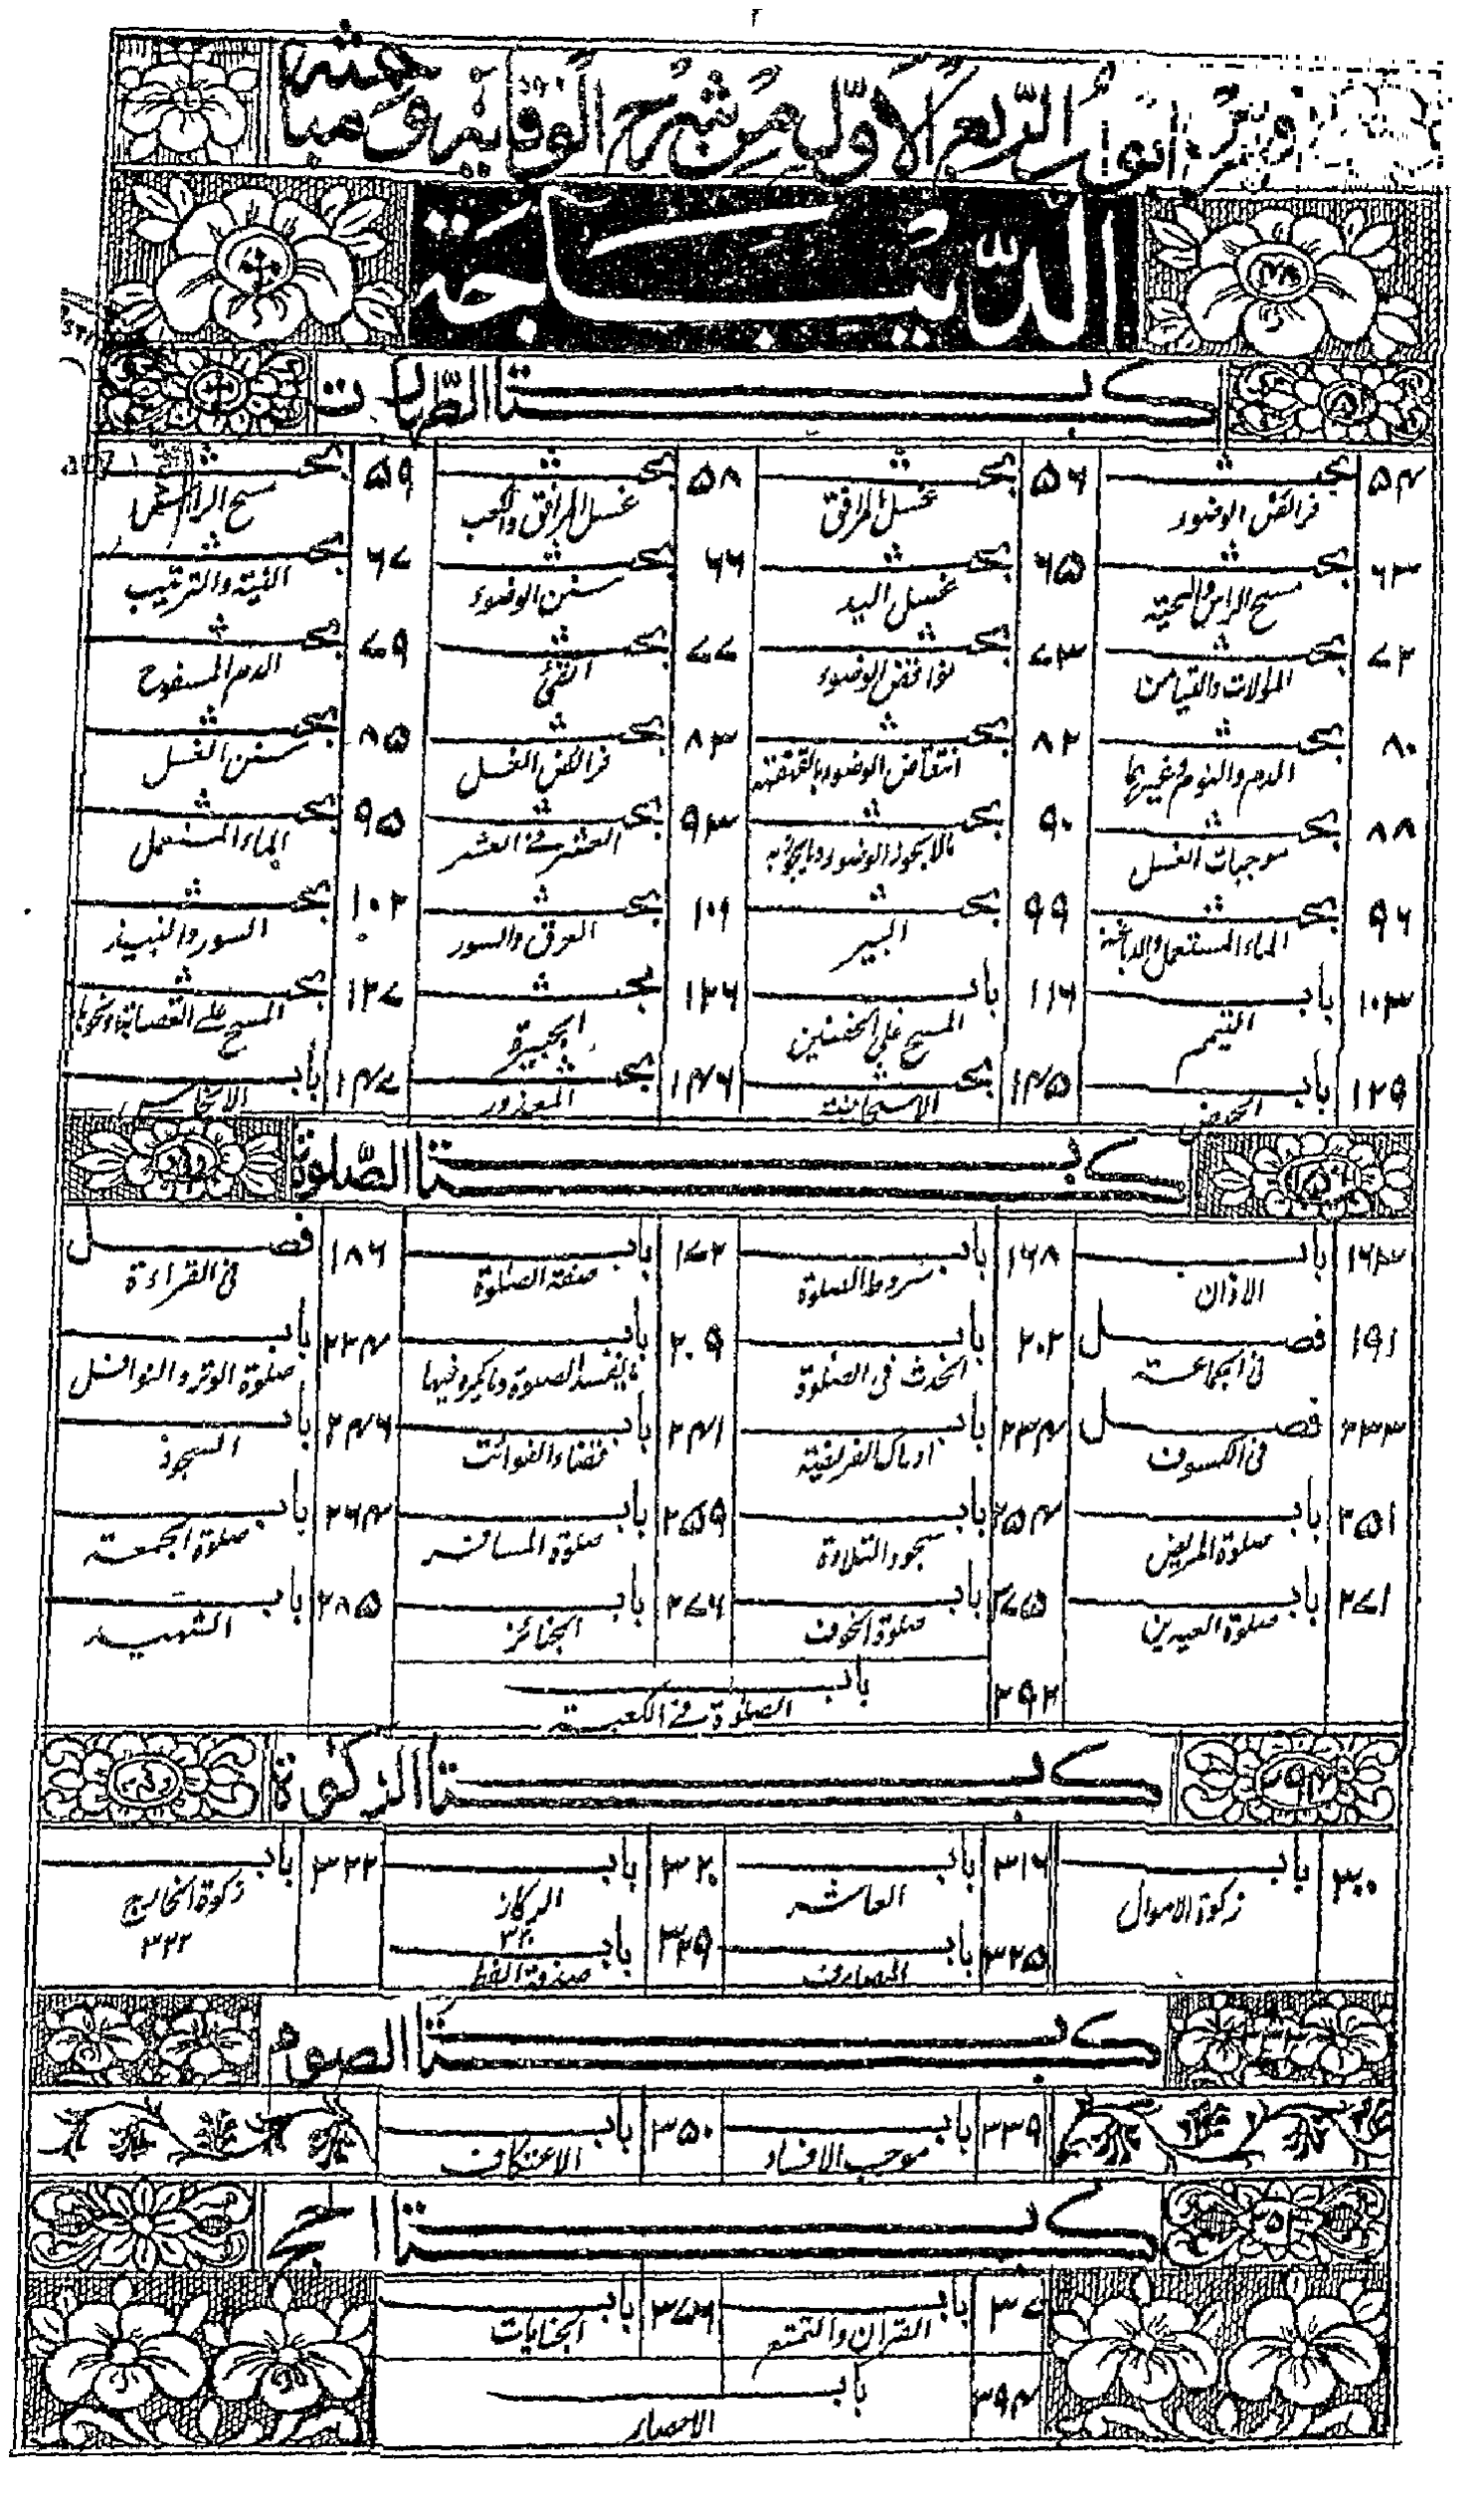 ۲
الربع الاول من شرح الوقاية ومباحثه
الديباجة
كتاب الطهارت
۵۴ بحث فرائض الوضوء ۵۶ بحث غسل المرافق ۵۸ بحث غسل المرافق والكعب ۵۹ بحث مسح الراس
۶۳ بحث مسح الراس واللحية ۶۵ بحث غسل اليد ۶۶ بحث سنن الوضوء ۶۷ بحث النية والترتيب
۷۲ بحث المولات والتيامن ۷۳ بحث نواقض الوضوء ۷۷ بحث القئ ۷۹ بحث الدم المسفوح
۸۰ بحث الدم والنوم وغيرہما ۸۲ بحث انتقاض الوضوء بالقهقهة ۸۳ بحث فرائض الغسل ۸۵ بحث سنن الغسل
۸۸ بحث موجبات الغسل ۹۰ بحث مالايجوز الوضوء ومايجوز به ۹۳ بحث العشر فى العشر ۹۵ بحث الماء المستعمل
۹۶ بحث الماء المستعمل والدباغة ۹۹ بحث البير ۱۰۱ بحث العرق والسور ۱۰۲ بحث السور والنبيذ
۱۰۳ باب التيمم ۱۱۶ باب المسح على الخفين ۱۲۶ بحث الجبيرة ۱۲۷ بحث المسح على العصابة ونحوها
۱۲۹ باب الحيض ۱۴۵ بحث الاستحاضة ۱۴۶ بحث المعذور ۱۴۷ باب الانجاس
كتاب الصلوة
۱۶۳ باب الاذان ۱۶۸ باب شروط الصلوة ۱۷۲ باب صفة الصلوة ۱۸۶ فصل فى القراءة
۱۹۱ فصل فى الجماعة ۲۰۲ باب الحدث فى الصلوة ۲۰۹ باب مايفسد الصلوة ومايكره فيها ۲۲۴ باب صلوة الوتر والنوافل
۲۳۳ فصل فى الكسوف ۲۳۴ باب ادراك الفريضة ۲۴۱ باب قضاء الفوائت ۲۴۶ باب السجود
۲۵۱ باب صلوة المريض ۲۵۴ باب سجود التلاوة ۲۵۹ باب صلوة المسافر ۲۶۴ باب صلوة الجمعة
۲۷۱ باب صلوة العيدين ۲۷۵ باب صلوة الخوف ۲۷۶ باب الجنائز ۲۸۵ باب الشهيد
۲۹۲ باب الصلوة فى الكعبة
كتاب الزكوة
۳۰۰ باب زكوة الاموال ۳۱۶ باب العاشر ۳۲۰ باب الركاز ۳۲۲ باب زكوة الخارج ۳۲۲
۳۲۵ باب المصارف ۳۲۹ باب صدقة الفطر
كتاب الصوم
۳۳۹ باب موجب الافساد ۳۵۰ باب الاعتكاف
كتاب الحج
۳۷ باب القران والتمتع ۳۷۶ باب الجنايات
۳۹۴ باب الاحصار